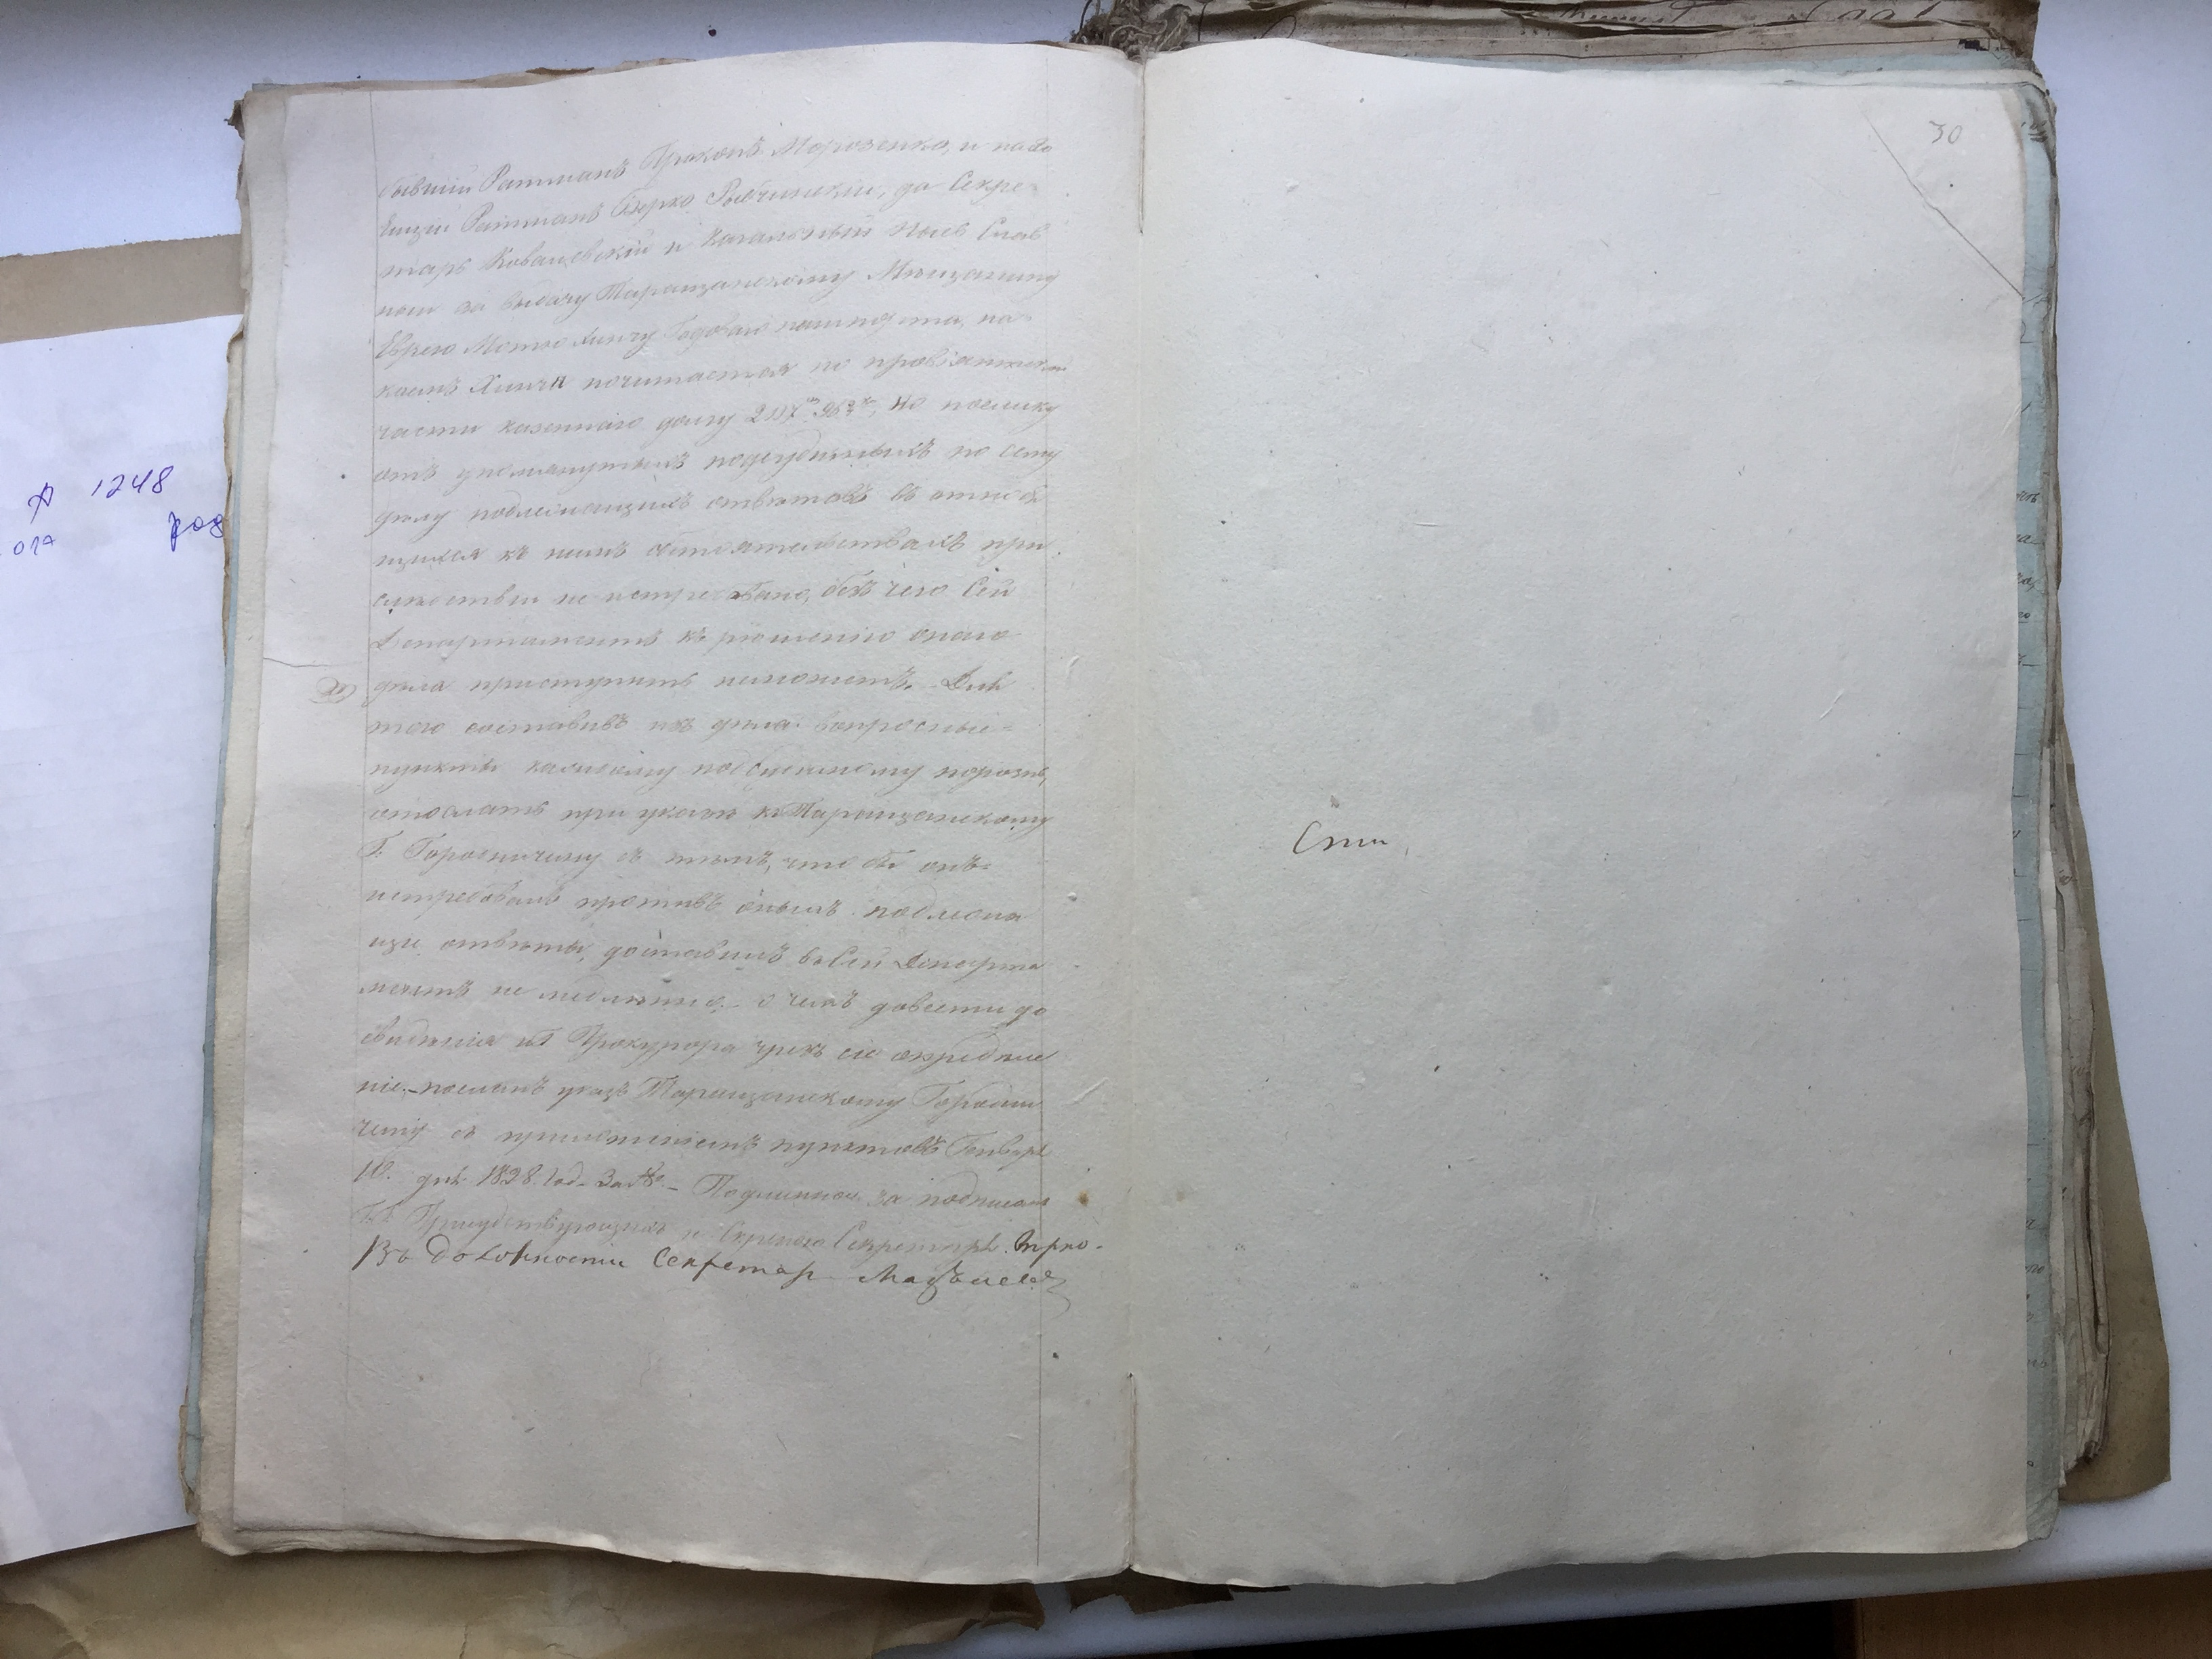 бывшій Ратманъ Прокопъ Морозенко, и нахо
дящій Ратманъ Берко Рыбчинскій, да Секре-
тарь Ковалевскій и Кагальный
за выдачу Таращанскому Мещанину
Еврею Мотю Хинчу Годоваго пашпорта, на
каемъ Хинчѣ почитается по провіантской
части казеннаго долгу но поелику
отъ упомянутыхъ подсудимыхъ по сему
дѣлу подлежащихъ ответовъ въ относя
щихся къ нимъ обстоятельствахъ при
слѣдствіи не истребовано, безъ чего Сей
Департаментъ къ рѣшенію онаго
дѣла приступить неможетъ. Для
того составивъ изъ дѣла вопросные
пункты каждому подсудимому порознь,
отослать при указѣ к Таращанскому
Г. Городничему съ тѣмъ, что бы онъ
истребовавъ противъ оныхъ подлежа
щіе ответы, доставилъ въ Сей Департа
ментъ не медленно. О чемъ довести до
свидѣнія Г. Прокурора чрезъ сіе опредѣле
ніе. посланъ указъ Таращанскому Городни
чему съ приложеніемъ пунктовъ Генваря
10. дня 1828. год. За № Подлинное за подписомъ
Г.г. Присудствующихъ и Скрепою Секретаря. Вѣрно.
Въ должности Секретар
30
1248